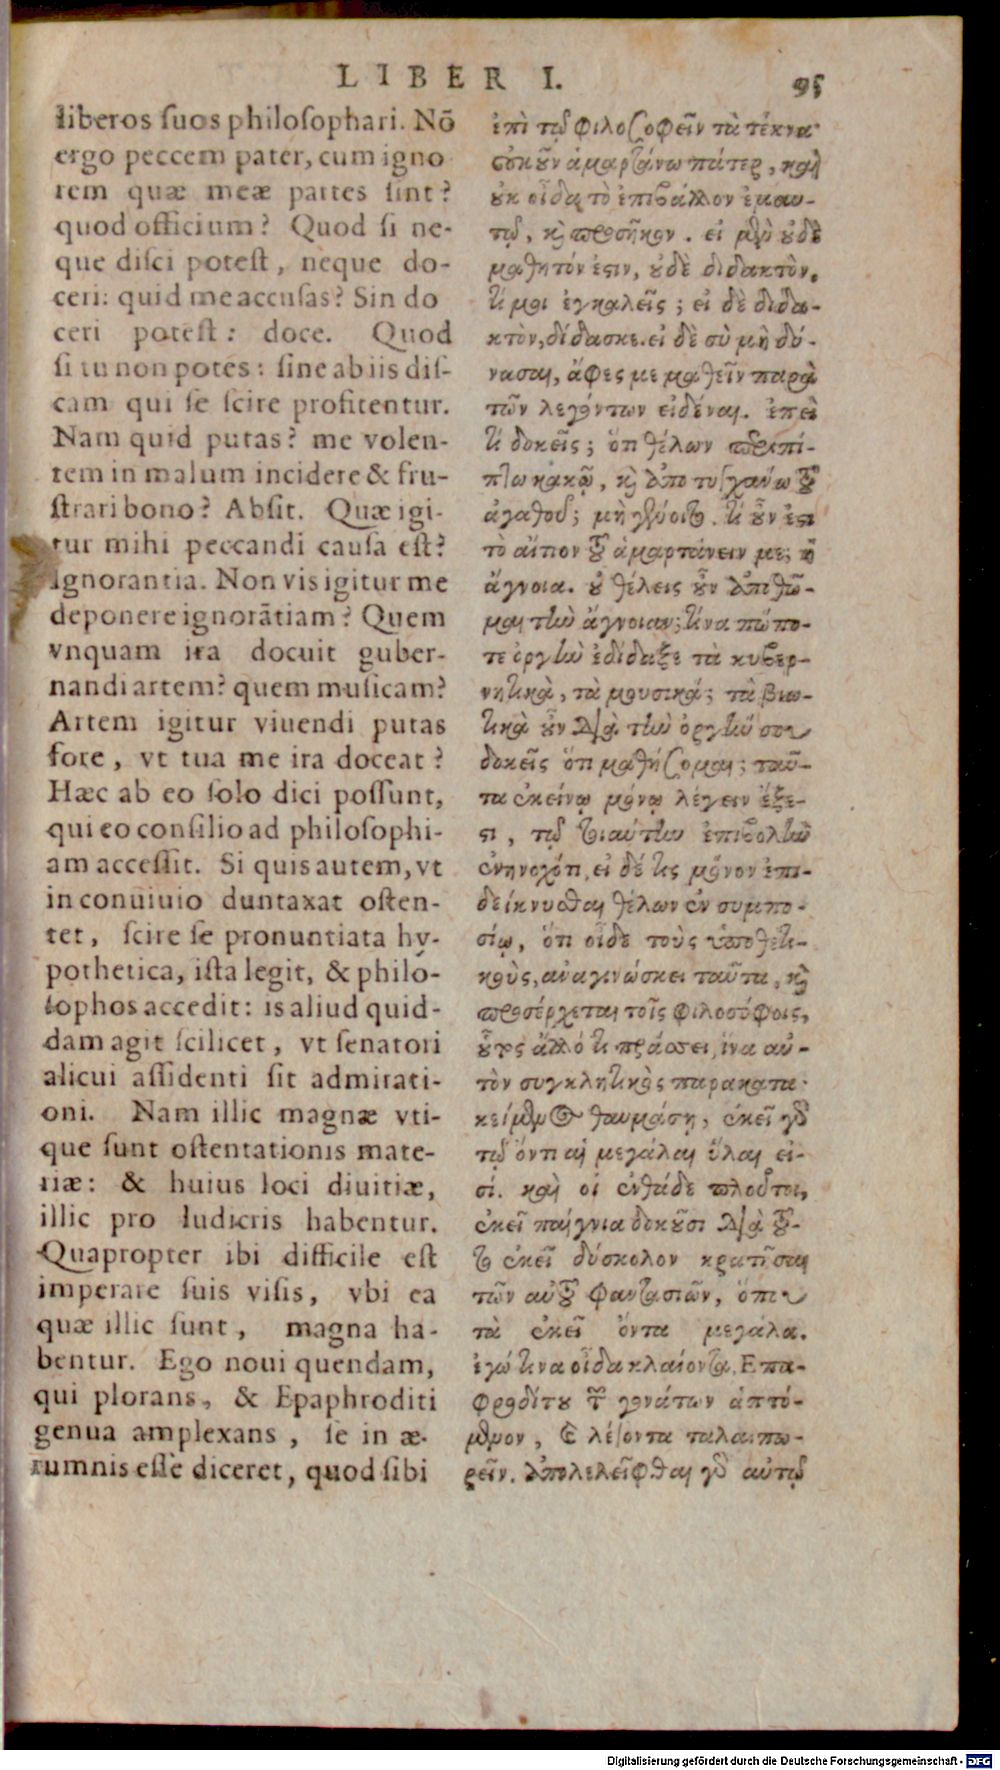 LIBER I. 95
liberos suos philosophari. Nō
ergo peccem pater, cum igno
rem quæ meæ partes sint?
quod officium? Quod si ne-
que disci potest, neque do-
ceri: quid me accusas? Sin do
ceri potest: doce. Quod
si tu non potes: sine ab iis dis-
cam qui se scire profitentur.
Nam quid putas? me volen-
tem in malum incidere & fru-
strari bono? Absit. Quæ igi-
tur mihi peccandi causa est?
Ignorantia. Non vis igitur me
deponere ignorātiam? Quem
vnquam ira docuit guber-
nandi artem? quem musicam?
Artem igitur viuendi putas
fore, vt tua me ira doceat?
Hæc ab eo solo dici possunt,
qui eo consilio ad philosophi-
am accessit. Si quis autem, vt
in conuiuio duntaxat osten-
tet, scire se pronuntiata hy-
pothetica, ista legit, & philo-
sophos accedit: is aliud quid-
dam agit scilicet, vt senatori
alicui assidenti sit admirati-
oni. Nam illic magnæ vti-
que sunt ostentationis mate-
riæ: & huius loci diuitiæ,
illic pro ludicris habentur.
Quapropter ibi difficile est
imperare suis visis, vbi ea
quæ illic sunt, magna ha-
bentur. Ego noui quendam,
qui plorans, & Epaphroditi
genua amplexans, se in æ-
rumnis esse diceret, quod sibi
ἐπὶ τῷ φιλοσοφεῖν τὰ τέκνα·
οὐκοῦν ἁμαρτάνω πάτερ, καὶ
οὐκ οἶδα τὸ ἐπιβάλλον ἐμαυ-
τῷ, καὶ προσῆκον. εἰ μὲν οὐδὲ
μαθητόν ἐστιν, οὐδὲ διδακτὸν,
τί μοι ἐγκαλεῖς; εἰ δὲ διδα-
κτὸν, δίδασκε. εἰ δὲ σὺ μὴ δύ-
νασαι, ἄφες με μαθεῖν παρὰ
τῶν λεγόντων εἰδέναι. ἐπεὶ
τί δοκεῖς; ὅτι θέλων περιπί-
πτω κακῷ, καὶ ἀποτυγχάνω τοῦ
ἀγαθοῦ; μὴ γένοιτο. τί οὖν ἐστι
τὸ αἴτιον τοῦ ἁμαρτάνειν με; ἡ
ἄγνοια. οὐ θέλεις οὖν ἀποθῶ-
μαι τὴν ἄγνοιαν; τίνα πώπο-
τε ὀργὴ ἐδίδαξε τὰ κυβερ-
νητικὰ, τὰ μουσικά; τὰ βιω-
τικὰ οὖν διὰ τὴν ὀργήν σου
δοκεῖς ὅτι μαθήσομαι; ταῦ-
τα ἐκείνῳ μόνῳ λέγειν ἔξε-
στι, τῷ τοιαύτην ἐπιβολὴν
ἐνηνοχότι, εἰ δέ τις μόνον ἐπι-
δείκνυσθαι θέλων ἐν συμπο-
σίῳ, ὅτι οἶδε τοὺς ὑποθετι-
κοὺς, ἀναγινώσκει ταῦτα, καὶ
προσέρχεται τοῖς φιλοσόφοις,
οὗτος ἄλλό τι πράσσει, ἵνα αὐ-
τὸν συγκλητικὸς παρακατα-
κείμενος θαυμάσῃ, ἐκεῖ γὰρ
τῷ ὄντι αἱ μεγάλαι ὗλαι εἰ-
σί. καὶ οἱ ἐνθάδε πλοῦτοι,
ἐκεῖ παίγνια δοκοῦσι διὰ τοῦ-
το ἐκεῖ δύσκολον κρατῆσαι
τῶν αὑτοῦ φαντασιῶν, ὅπου
τὰ ἐκεῖ ὄντα μεγάλα.
ἐγώ τινα οἶδα κλαίοντα, Ἐπα-
φροδίτου τῶν γονάτων ἁπτό-
μενον, καὶ λέγοντα ταλαιπω-
ρεῖν. ἀπολελεῖφθαι γὰρ αὐτῷ
Digitalisierung gefördert durch die Deutsche Forschungsgemeinschaft - DFG